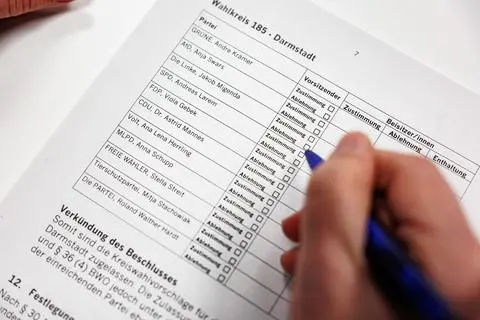 Wahlkreis 185 - Darmstadt
7
Partei
Vorsitzender
Beisitzer/innen
Zustimmung
Ablehnung
Enthaltung
GRÜNE, Andre Kramer
Zustimmung
Ablehnung
AfD, Anja Swars
Zustimmung
Ablehnung
Die Linke, Jakob Migenda
Zustimmung
Ablehnung
SPD, Andreas Larem
Zustimmung
Ablehnung
FDP, Viola Gebek
Zustimmung
Ablehnung
CDU, Dr. Astrid Mannes
Zustimmung
Ablehnung
Volt, Ana Lena Herrling
Zustimmung
Ablehnung
MLPD, Anna Schupp
Zustimmung
Ablehnung
FREIE WÄHLER, Stella Streit
Zustimmung
Ablehnung
Tierschutzpartei, Mitja Stachowiak
Zustimmung
Ablehnung
Die PARTEI, Roland Walther Hardt
Zustimmung
Ablehnung
Verkündung des Beschlusses
Somit sind die Kreiswahlvorschläge für
Darmstadt zugelassen. Die Zulassung
und § 36 (4) BWO jedoch unter
der einreichenden Partei
12 Festlegung
Nach § 30